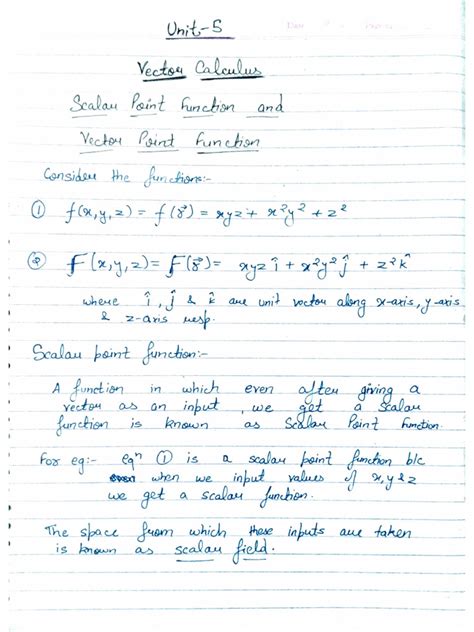 Unit-5
Vector Calculus
Scalar Point Function and
Vector Point Function
Consider the functions:-
① f(x,y,z) = f(r⃗) = xyz + x²y² + z²
② F(x,y,z) = F(r⃗) = xyz î + x²y² ĵ + z² k̂
where î, ĵ & k̂ are unit vector along x-axis, y-axis
& z-axis resp.
Scalar point function:-
A function in which even after giving a
vector as an input, we get a scalar
function is known as Scalar Point Function.
For eg:- eqⁿ ① is a scalar point function b/c
when we input values of x,y & z
we get a scalar function.
The space from which these inputs are taken
is known as scalar field.